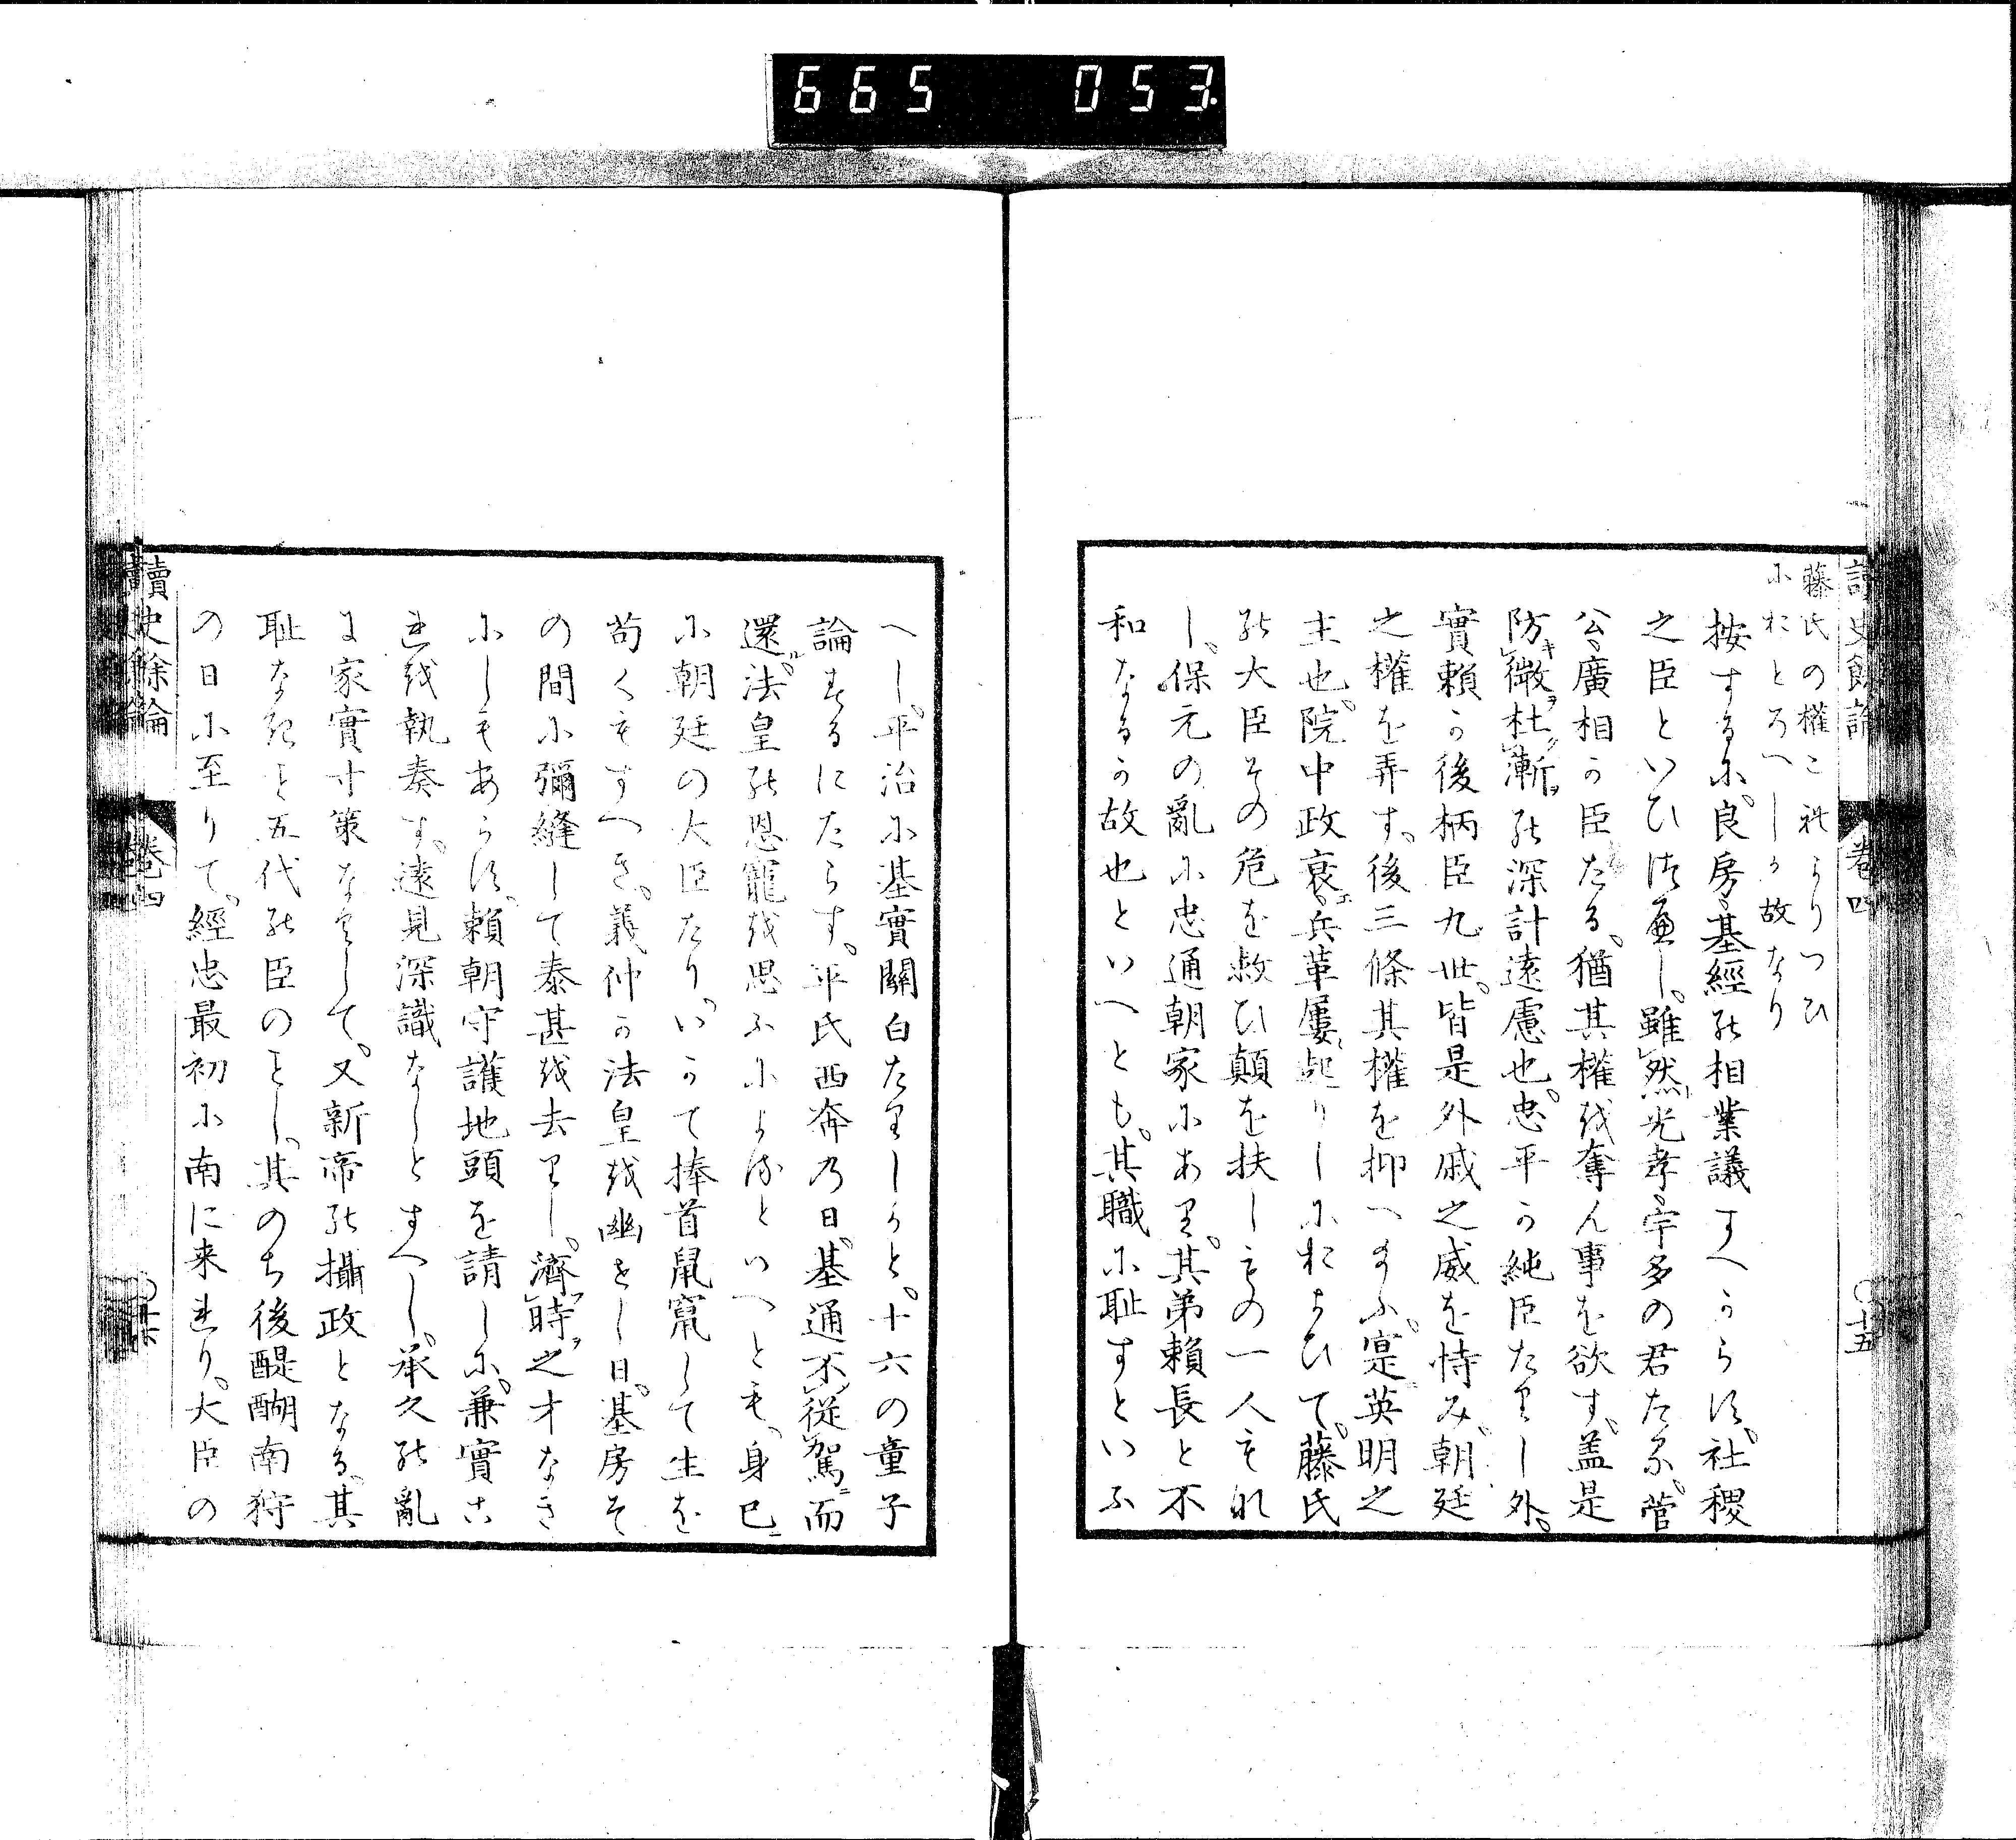 665 053
讀史餘論 卷四 〇十五
藤氏の權これよりつひ
におとろへしか故なり
按するに。良房。基經の相業議すへからす。社稷
之臣といひつへし。雖然光孝。宇多の君たる。菅
公。廣相か臣たる。猶其權を奪ん事を欲す。盖是
防微杜漸の深計遠慮也。忠平か純臣たりし外。
實賴か後柄臣九世。皆是外戚之威を恃み。朝廷
之權を弄す。後三條其權を抑へ給ふ。寔英明之
主也。院中政衰。兵革屢起りしにおよひて。藤氏
の大臣その危を救ひ顛を扶しもの一人もな
し。保元の亂に忠通朝家にあり。其弟賴長と不
和なるか故也といへとも。其職に恥すといふ
へし。平治に基實關白たりしかと。十六の童子
論するにたらす。平氏西奔の日。基通不從駕而
還。法皇の恩寵を思ふによるといへとも。身已
に朝廷の大臣たり。いかて捧首鼠竄して生を
苟くもすへき。義仲か法皇を幽せし日。基房そ
の間に彌縫して泰甚を去りし。濟時之才なき
にしもあらす。賴朝守護地頭を請しに。兼實こ
れを執奏す。遠見深識なしとすへし。承久の亂
に家實寸策なくして。又新帝の攝政となる。其
恥なきこと五代の臣のことし。其のち後醍醐南狩
の日に至りて。經忠最初に南に来れり。大臣の
讀史餘論 卷四